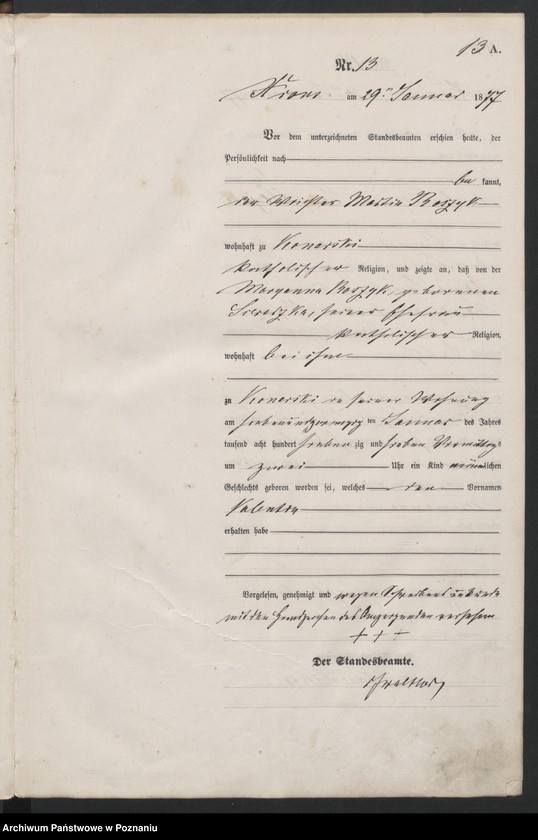 13 A.
Nr. 13
Xions am 29ten Januar 1877
Vor dem unterzeichneten Standesbeamten erschien heute, der
Persönlichkeit nach
be kannt,
der Martin Raszyk
wohnhaft zu Konarski
katholischer Religion, und zeigte an, daß von der
Maryanna Raszyk, geborenen
seiner Ehefrau
katholischer Religion,
wohnhaft bei ihm
zu Konarski in seiner Wohnung
am siebenundzwanzigsten Januar des Jahres
tausend acht hundert sieben zig und sieben Vormittags
um zwei Uhr ein Kind männlichen
Geschlechts geboren worden sei, welches den Vornamen
Valentin
erhalten habe
Vorgelesen, genehmigt und wegen Schreibensunkunde
mit den Handzeichen des Anzeigenden versehen
+ + +
Der Standesbeamte.
Archiwum Państwowe w Poznaniu